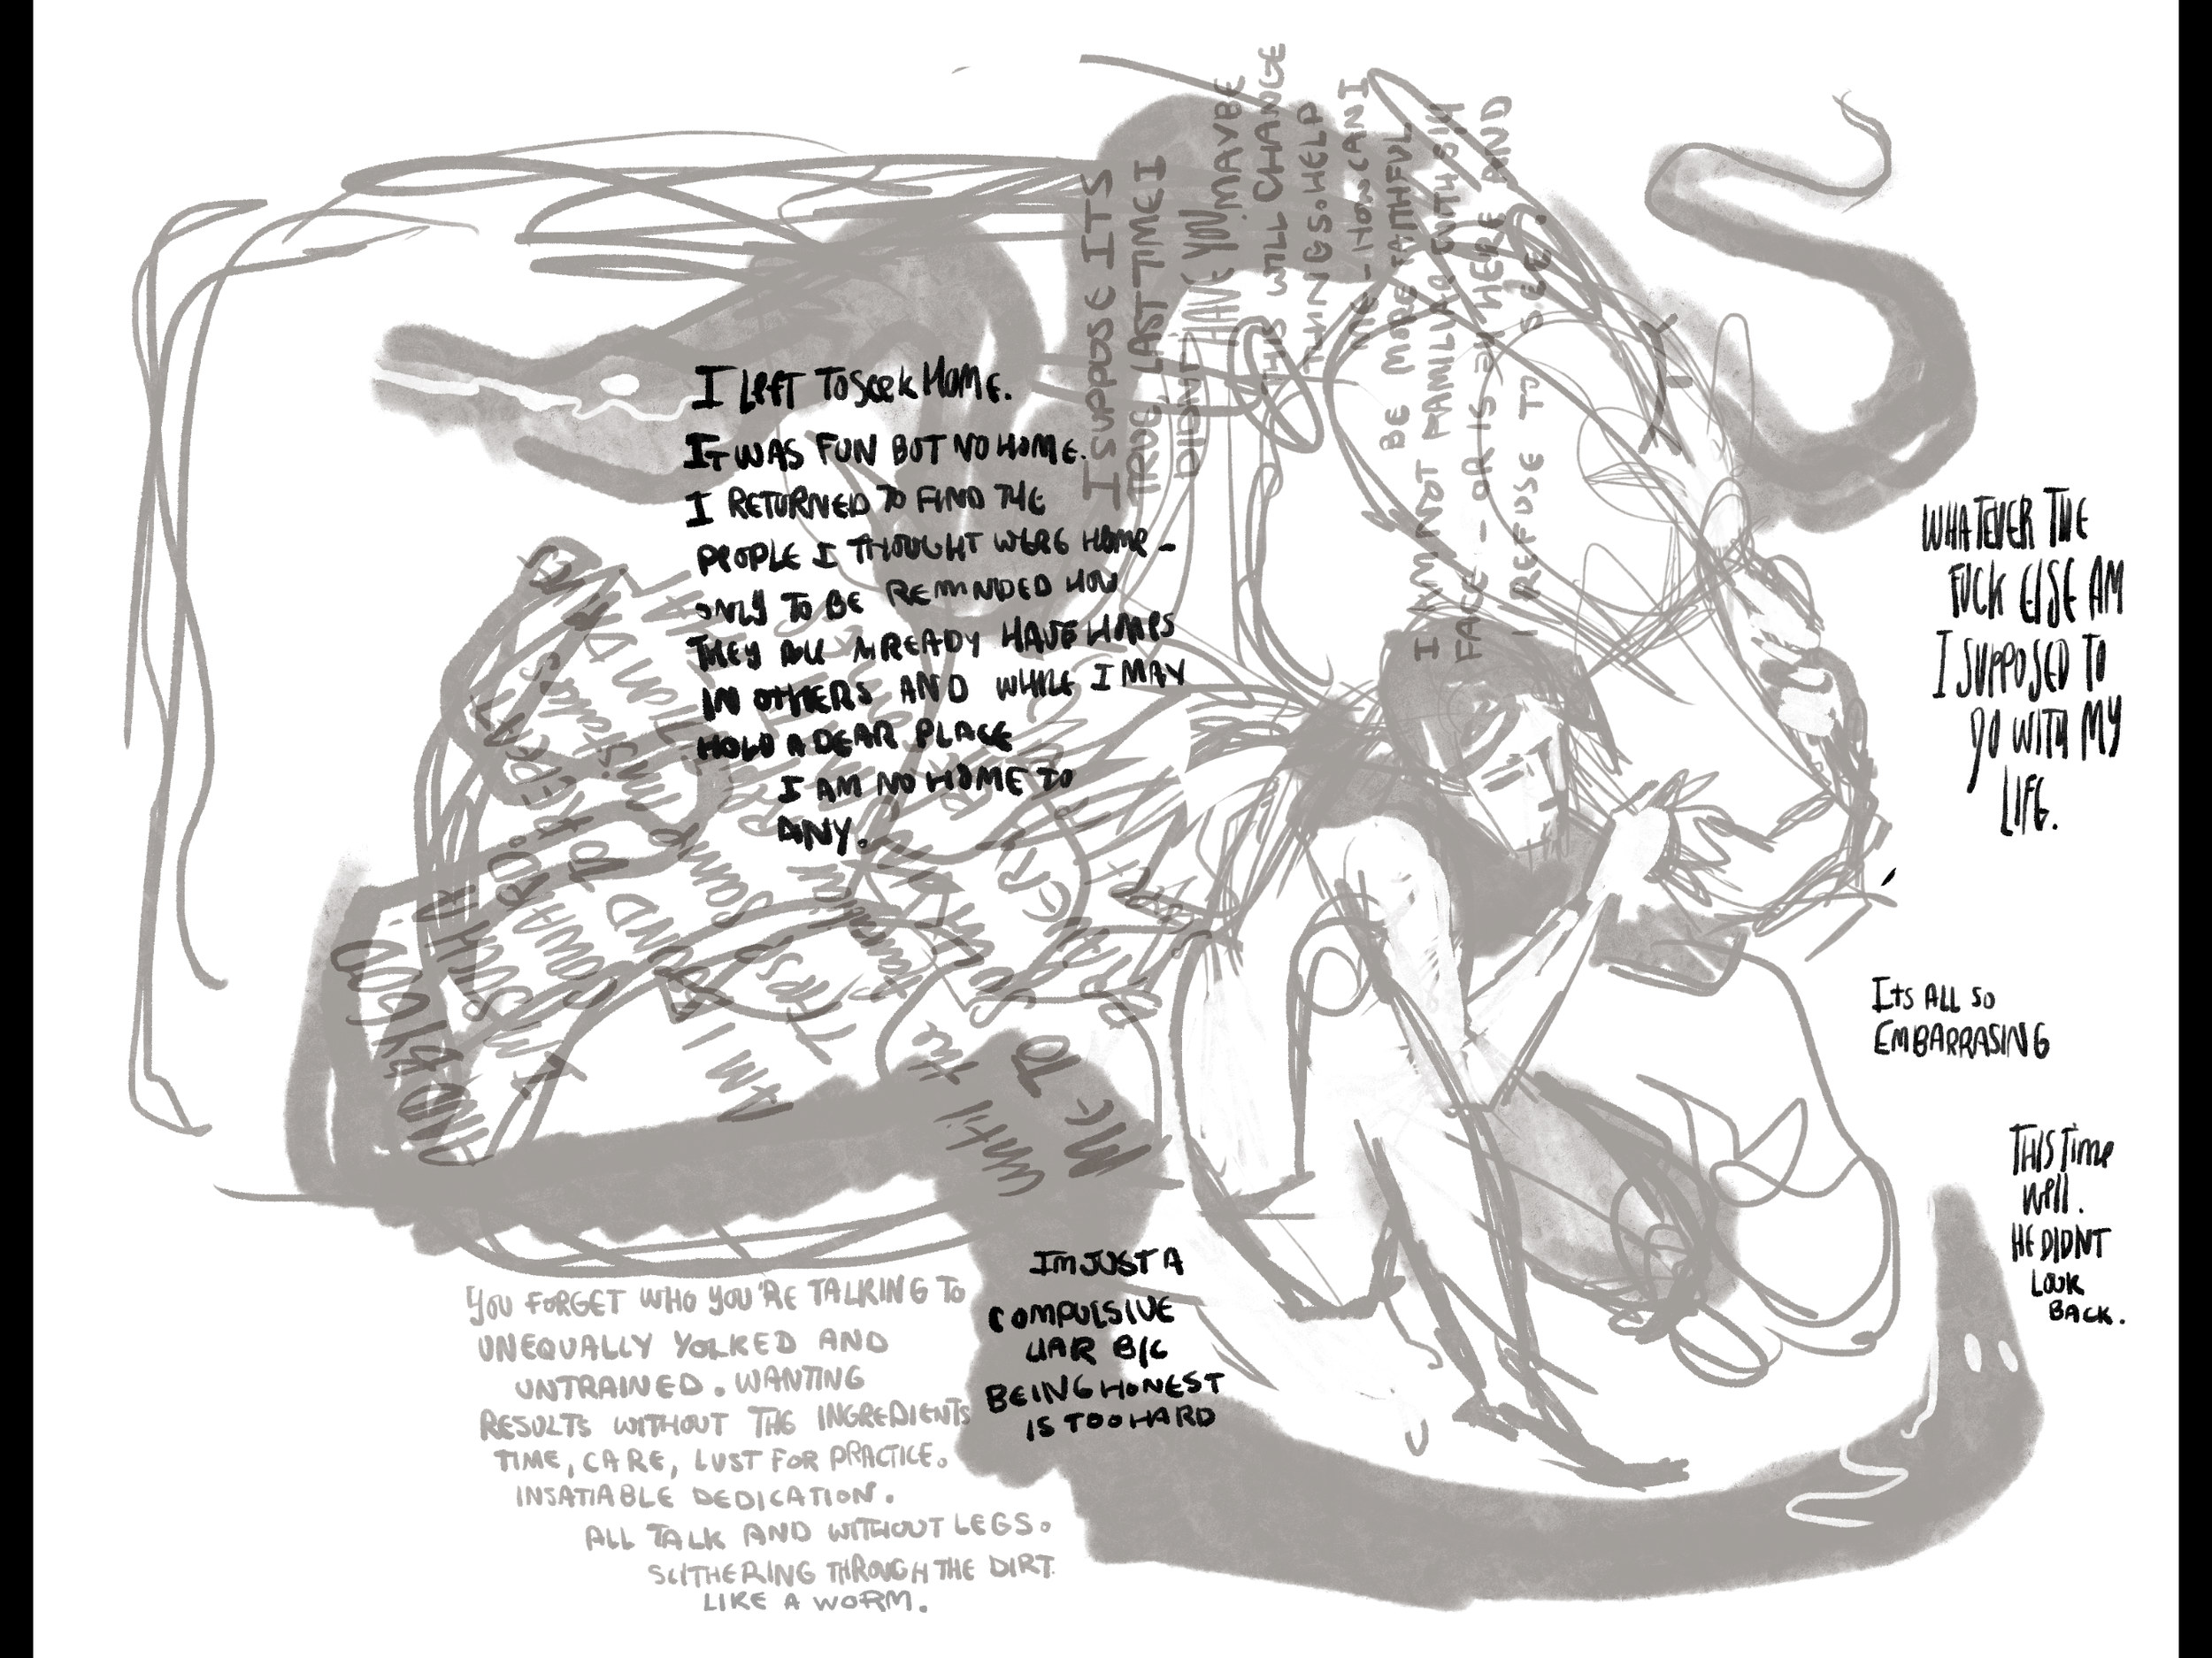 I LEFT TO SEEK HOME.
IT WAS FUN BUT NO HOME.
I RETURNED TO FIND THE
PEOPLE I THOUGHT WERE HOME -
ONLY TO BE REMINDED HOW
THEY ALL ALREADY HAVE HOMES
IN OTHERS AND WHILE I MAY
HOLD A DEAR PLACE
I AM NO HOME TO
ANY.
I SUPPOSE ITS
TRUE LAST TIME I
DIDNT HAVE YOU MAYBE
THIS WILL CHANGE
THINGS. HELP
ME - HOW CAN I
BE MORE FAITHFUL
I AM NOT FAMILIAR WITH SIN
FACE - OR IS IT HERE AND
I REFUSE TO SEE.
WHATEVER THE
FUCK ELSE AM
I SUPPOSED TO
DO WITH MY
LIFE.
ITS ALL SO
EMBARRASING
THIS TIME
WELL.
HE DIDNT
LOOK
BACK.
AND BY GOD
SUCH A
COWARD.
AM I BOUND TO REPEAT
THOSE SAME
until the
ME TO
IM JUST A
COMPULSIVE
LIAR B/C
BEING HONEST
IS TOO HARD
YOU FORGET WHO YOU'RE TALKING TO
UNEQUALLY YOLKED AND
UNTRAINED. WANTING
RESULTS WITHOUT THE INGREDIENTS
TIME, CARE, LUST FOR PRACTICE.
INSATIABLE DEDICATION.
ALL TALK AND WITHOUT LEGS.
SLITHERING THROUGH THE DIRT
LIKE A WORM.